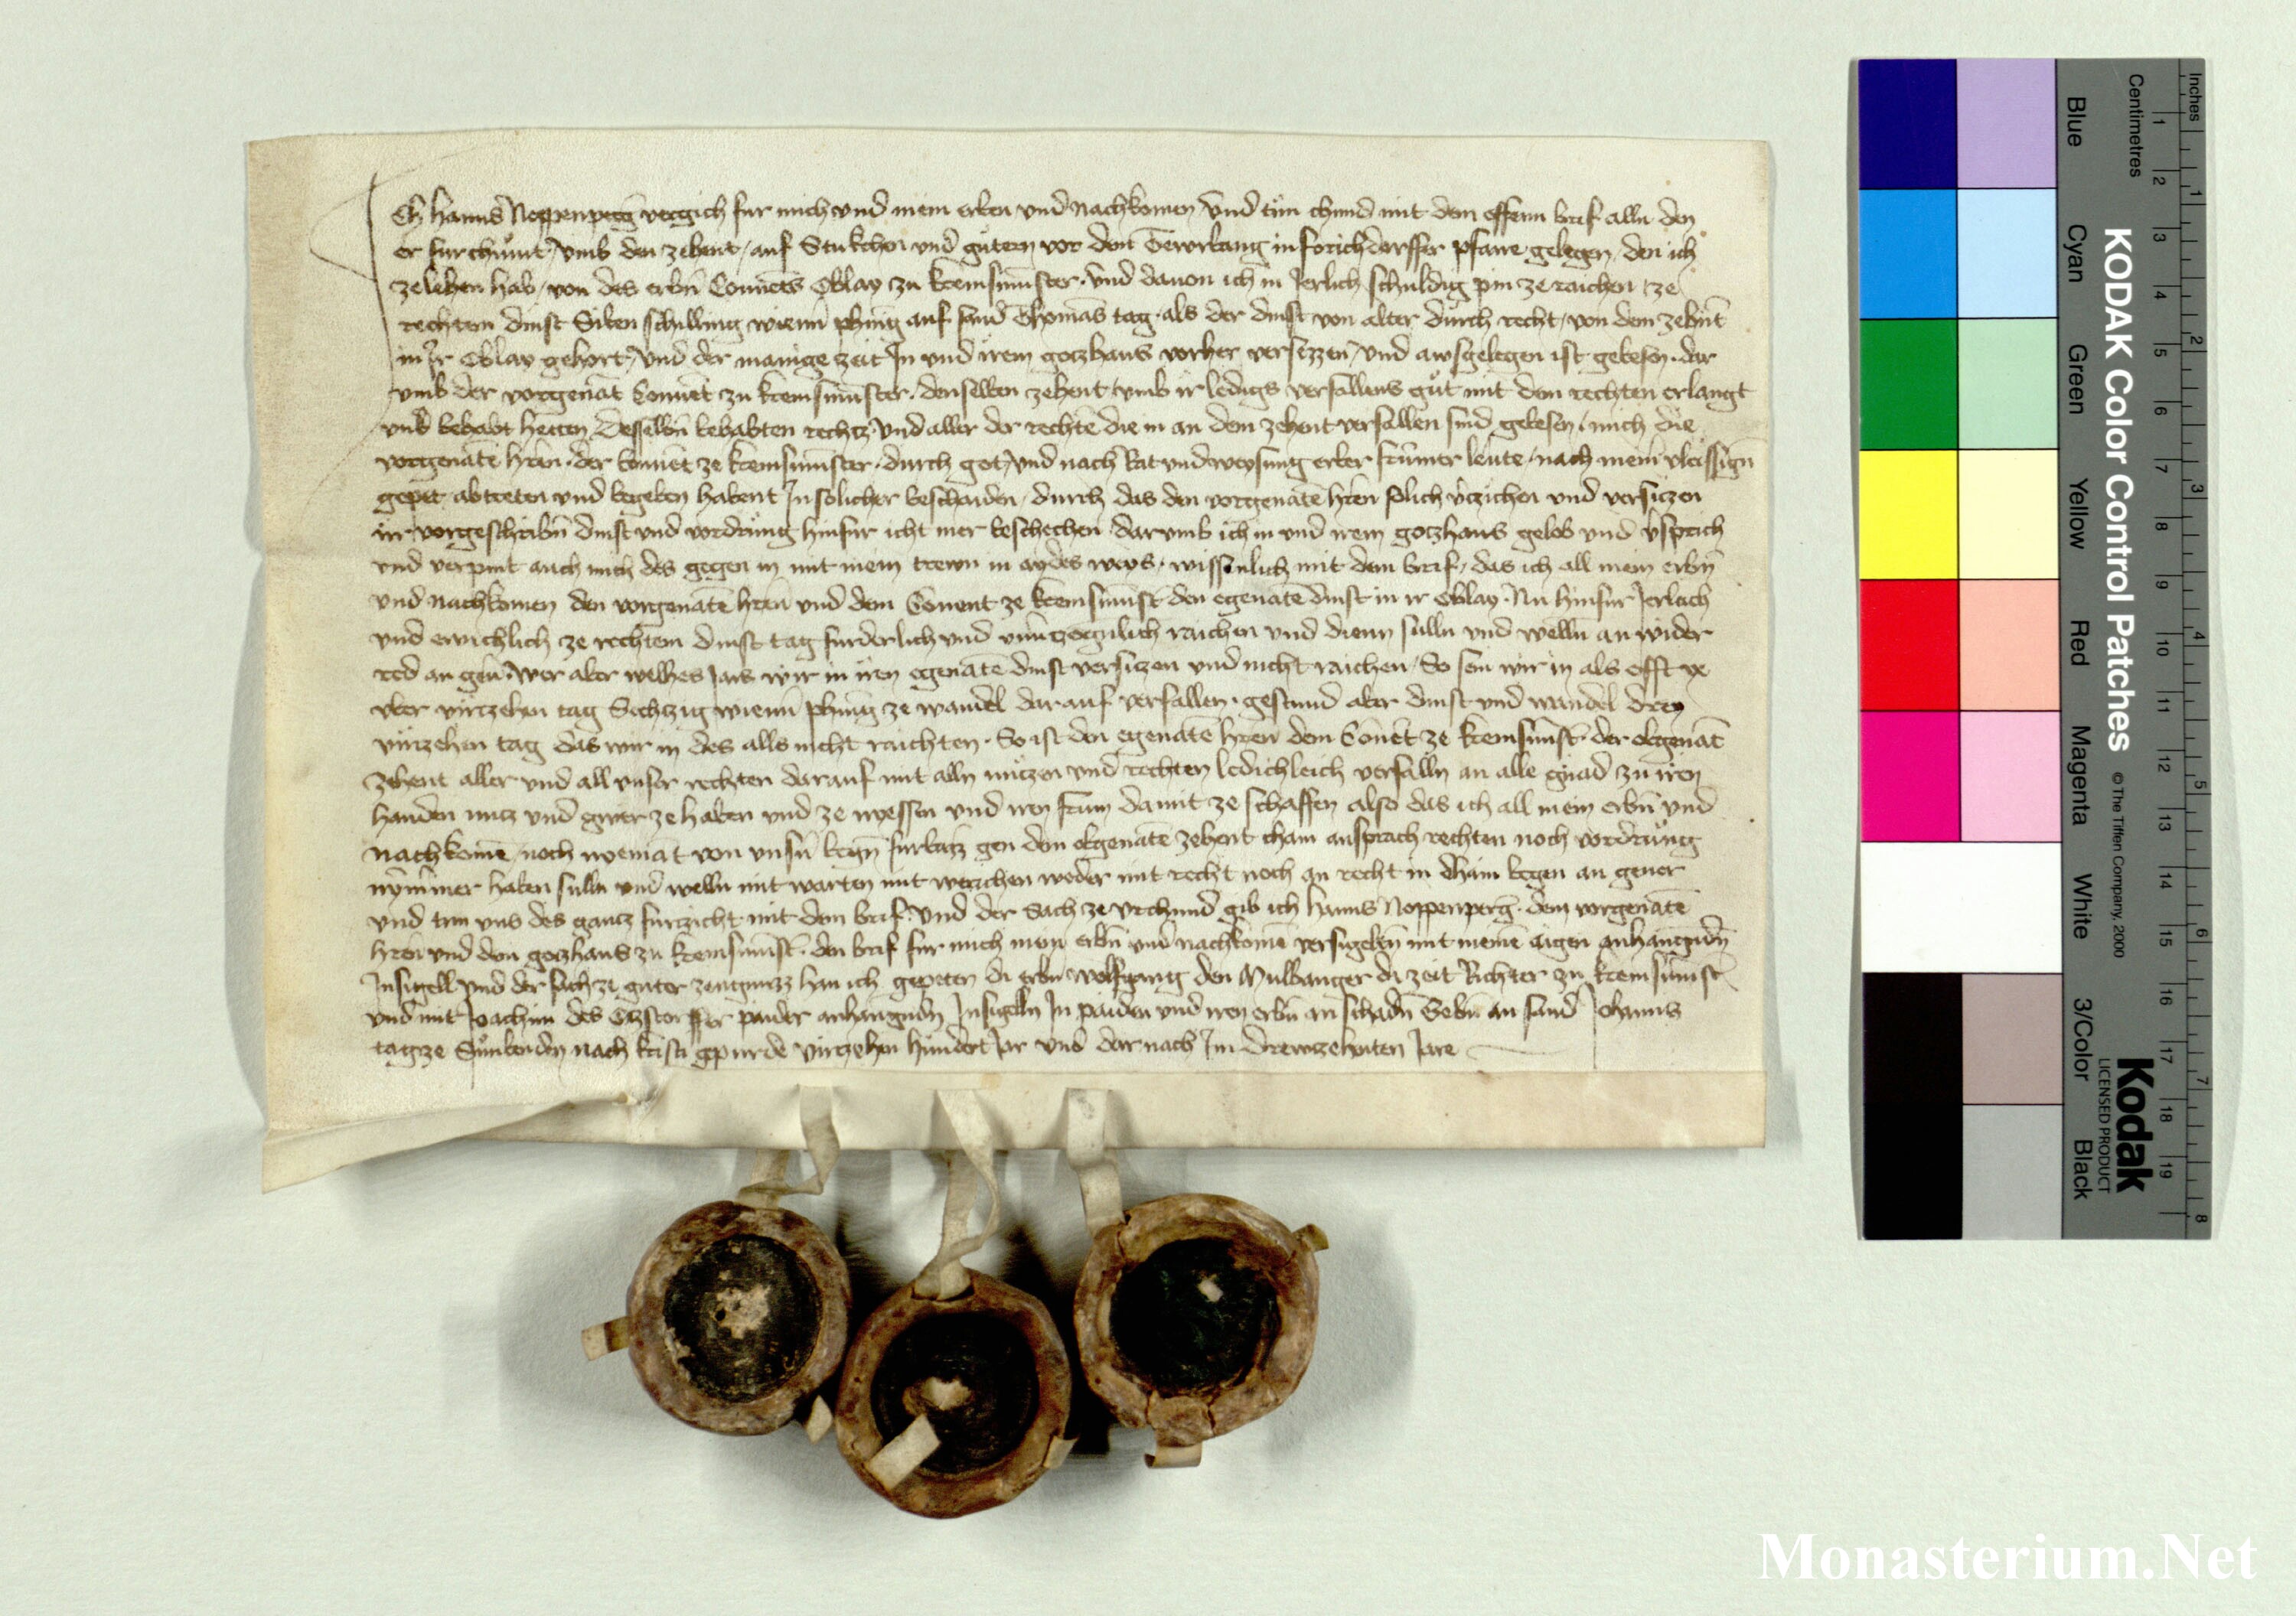 Ich Hanns Noppenperḡ vergich fur mich vnd mein erben vnd nachkomen vnd tun chund mit dem offenn brif allen den
er furchumt, vmb den zehent, auf Stukchen vnd gütern vor dem in Forichdorffer pfarre gelegen, den ich
ze lehen hab, von des erbn̄ Conuēts Oblay zu Kremsmūster. vnd dauon ich in Jerlich schuldig pin ze raichen ze
rechtem dinst Siben schilling wienn̄ phēnig auf sand Thomas tag. als der dinst von alter durch recht, von dem zehnt
in ir Oblay gehort, vnd der manige zeit In vnd irem gotzhaus vorher versezzen, vnd awsgelegen ist gebesen. dar
vmb der vorgenāt Conuēt zu Kremsmūster. denselben zehent vmb ir ledigs verfallens güt mit dem rechten erlangt
vnd behabt hetten, desselbn̄ behabten rechtz vnd aller der rechte die in an dem zehent verfallen sind gebesen, mich die
vorgenātē hrēn. der Conuēt ze Kremsmūster. durch got, vnd nach Rat vnderweysung erber frumer leute, nach meim vleissign̄
gepet abtreten vnd begeben habent In solicher beschaiden, durch das den vorgenātē hrēn solich vꝛ̄zichen vnd versiczen
irr vorgeschribn̄ dinst vnd vordrung hinfur icht mer beschechen darumb ich in vnd irem gotzhaus gelob vnd vꝛ̄sprich
vnd verpint auch mich des gegen in mit mein trewn in aydes weys. wissenlich mit dem brif, das ich all mein erbn̄
vnd nachkomen den vorgenātē hrēn vnd dem Conuent ze Kremsmūst̄ den egenātē dinst in ir Oblay. Nu hinfur Jerlich
vnd ewichlich ze rechtem dinst tag furderlich vnd vnuꝛ̄zogenlich raichen vnd dienn sulln vnd welln an wider
red an geu̇. wer aber welhes Jars wir in iren egenātē dinst versiczen vnd nicht raichen, So sein wir in als offt ye
vber virczehen tag Sechtzig wienn̄ phēnig ze wandel darauf verfallen. gestund aber dinst vnd wandel drey
virzehen tag das wir in des alls nicht raichten. So ist den egenātē hrēn dem Conuēt ze Kremsmūst̄. der obgenāt
zehent aller vnd all vnser rechten darauf mit alln nuczen vnd rechten ledichleich verfalln an alle gnad zu iren
handen nucz vnd gwer ze haben vnd ze nyessen vnd iren frum damit ze schaffen also das ich all mein erbn̄ vnd
nachkomē, noch nyemāt von vnsn̄ furbatz gen dem obgenātē zehent chain ansprach rechten noch vordrung
nymmer haben sulln vnd welln mit warten mit werchen weder mit recht noch an recht in dhain begen an geuer
vnd tun vns des gantz furzicht mit dem brif. vnd der Sach ze vrchund gib ich Hanns Noppenperḡ. dem vorgenātē
hrēn vnd dem gotzhaus zu Kremsmūst̄. den brif fur mich mein erbn̄ vnd nachkomē versigeltn̄ mit meinē aigen anhangūdn̄
Insigell vnd der sach ze guter zeugnuzz han ich gepeten di erbn̄ Wolfgang den Mulbanger di zeit Richter zu Kremsmūst̄
vnd mit Joachim des paider anhangūdn̄ Insigelln In paiden vnd iren erbn̄ an schadn̄ Gebn̄ an sand Johanns
tag ze Sunbenden nach kristi gepurde virtzehen hundert Jar vnd dar nach Im drewtzehnten Jare
Inches
Centimetres
Blue
Cyan
Green
Yellow
Red
Magenta
White
3/Color
Black
KODAK Color Control Patches
© The Tiffen Company, 2000
Kodak
LICENSED PRODUCT
1 2 3 4 5 6 7 8 9 10 11 12 13 14 15 16 17 18 19
1 2 3 4 5 6 7 8
Monasterium.Net